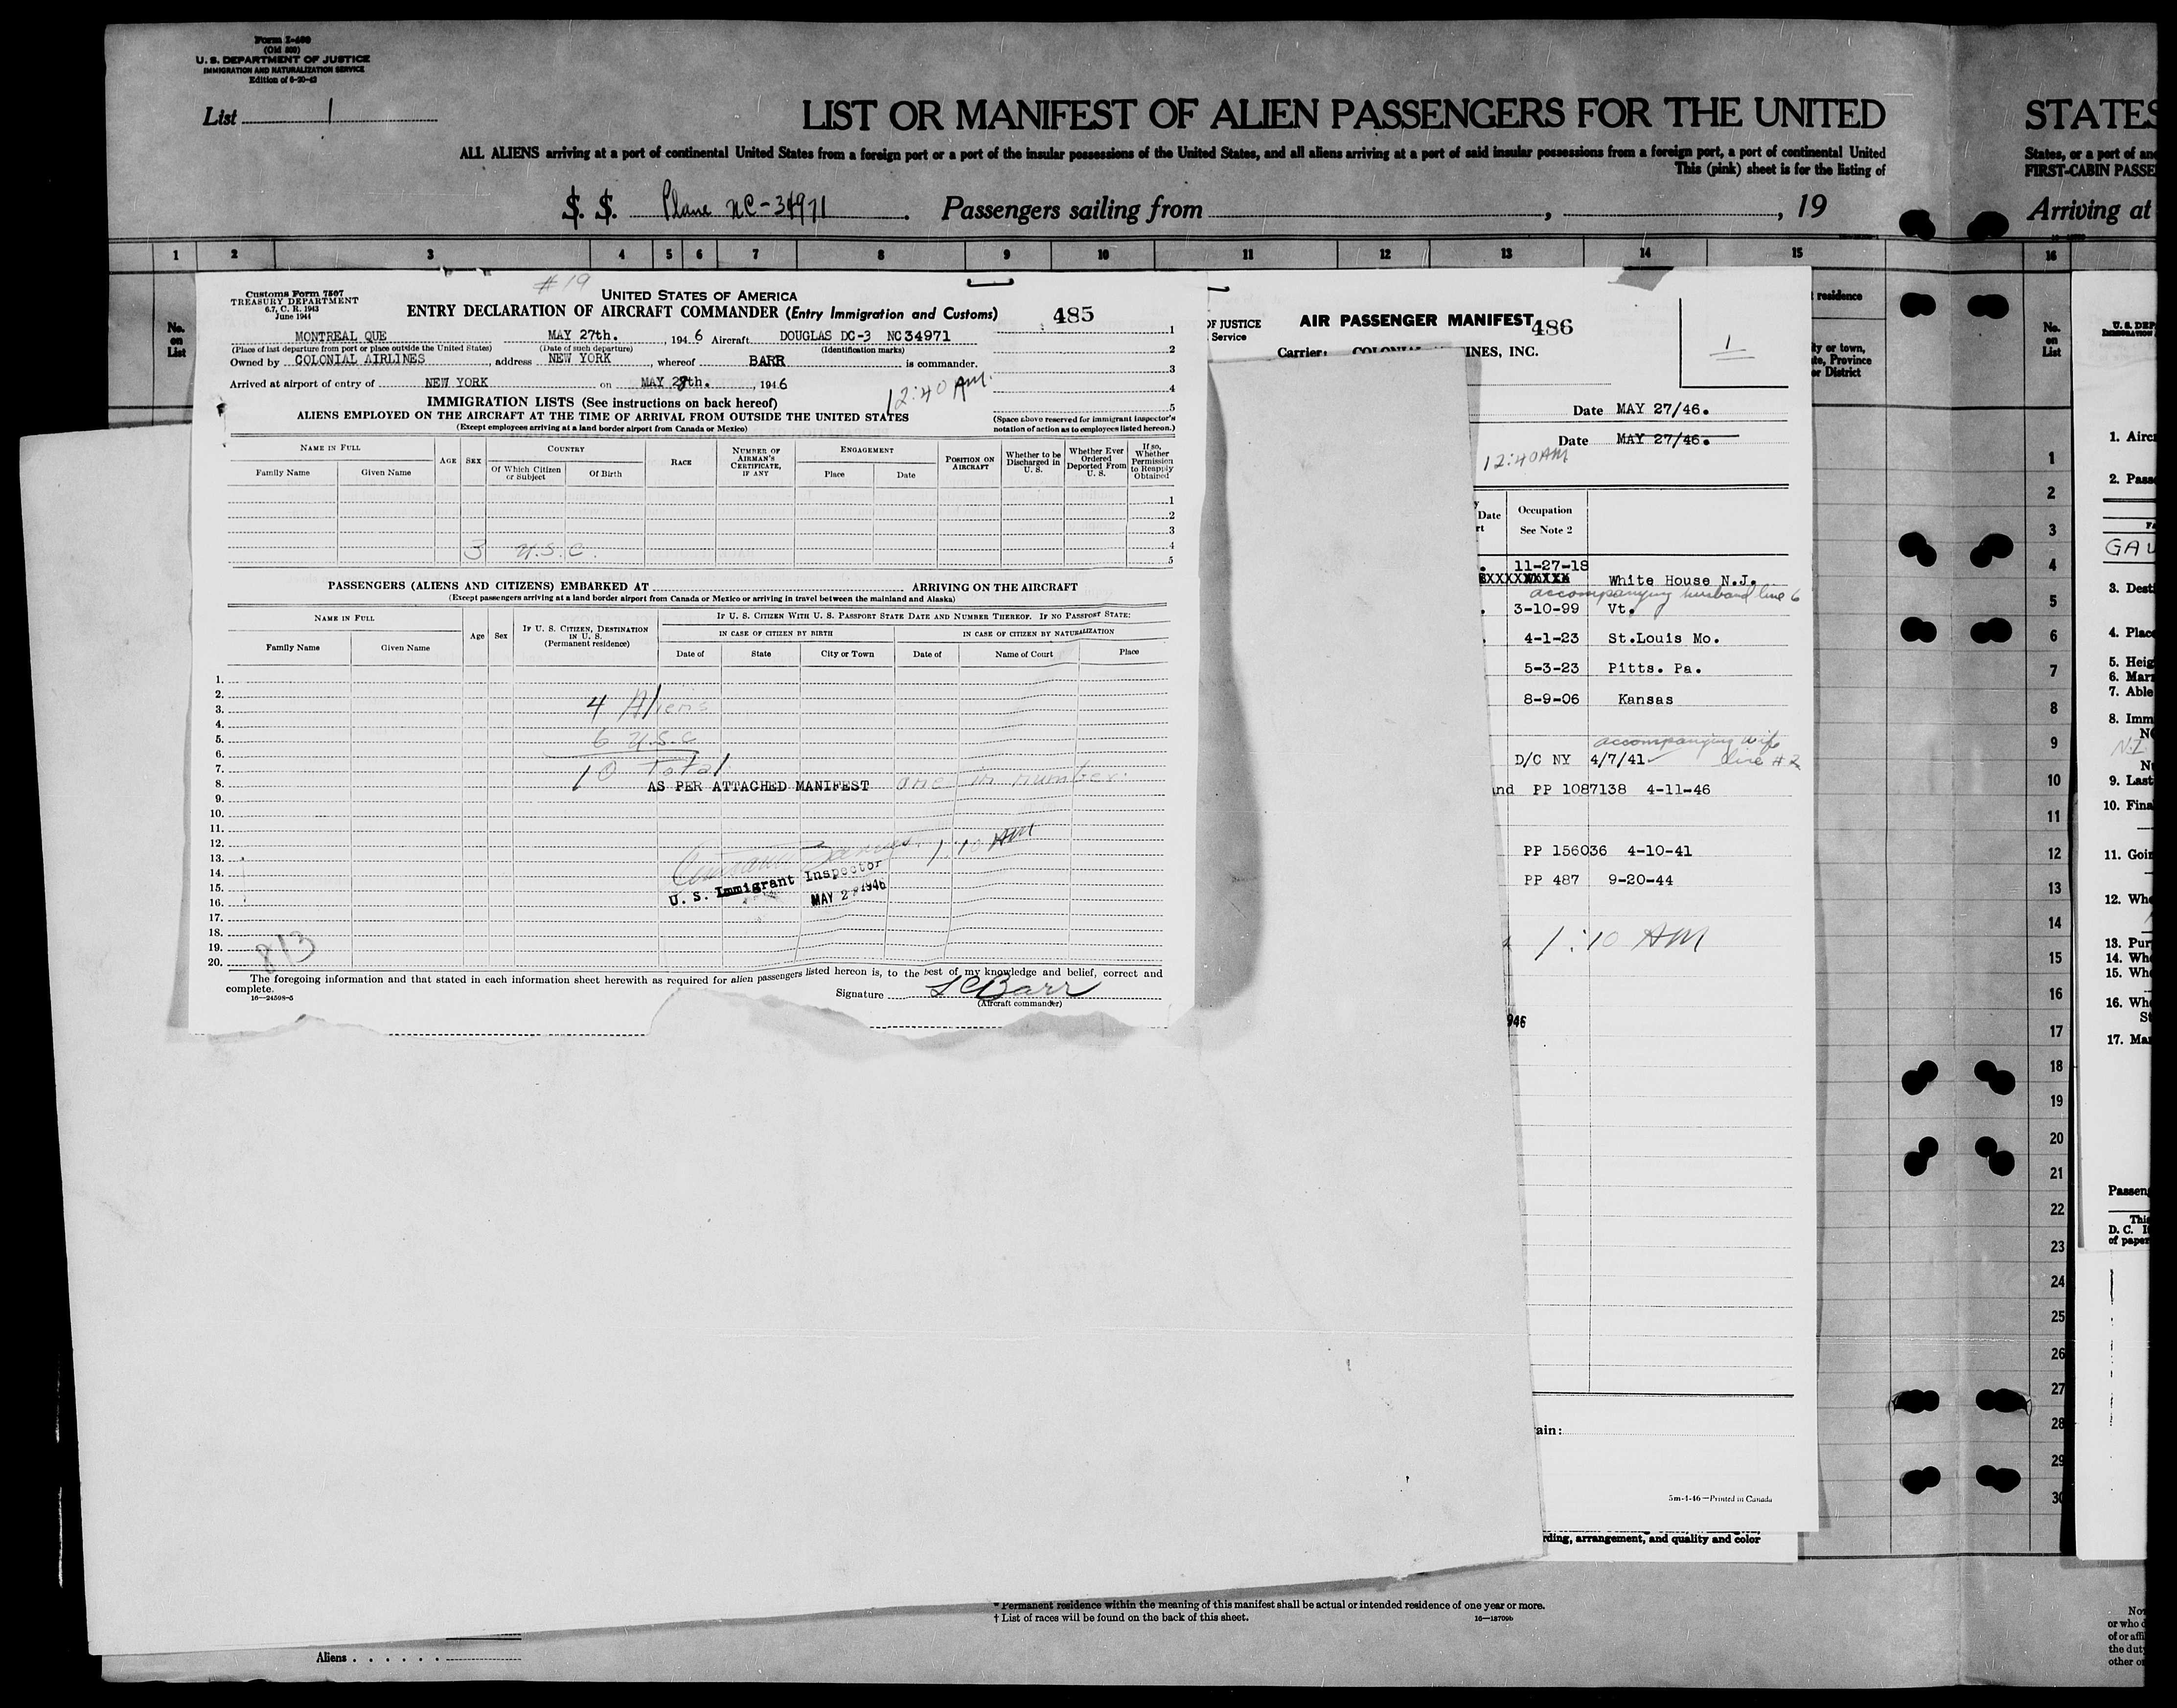 Form I-400
(Old 500)
U. S. DEPARTMENT OF JUSTICE
IMMIGRATION AND NATURALIZATION SERVICE
List 1
LIST OR MANIFEST OF ALIEN PASSENGERS FOR THE UNITED
STATES
ALL ALIENS arriving at a port of continental United States from a foreign port or a port of the insular possessions of the United States, and all aliens arriving at a port of said insular possessions from a foreign port, a port of continental United
States, or a port of
This (pink) sheet is for the listing of
FIRST-CABIN
S. S. Plane NC-34971. Passengers sailing from , , 19
Arriving at
1 2 3 4 5 6 7 8 9 10 11 12 13 14 15
16
No. on List
residence
or town,
Province
or District
No. on List
# 19
Customs Form 7507
TREASURY DEPARTMENT
6.7, C. R. 1943
June 1944
UNITED STATES OF AMERICA
ENTRY DECLARATION OF AIRCRAFT COMMANDER (Entry Immigration and Customs)
485
MONTREAL QUE MAY 27th. , 194 6 Aircraft DOUGLAS DC-3 NC34971
(Place of last departure from port or place outside the United States) (Date of such departure) (Identification marks)
Owned by COLONIAL AIRLINES , address NEW YORK , whereof BARR is commander.
Arrived at airport of entry of NEW YORK on MAY 28th. , 194 6
12:40 AM.
1
2
3
4
5
IMMIGRATION LISTS (See instructions on back hereof)
ALIENS EMPLOYED ON THE AIRCRAFT AT THE TIME OF ARRIVAL FROM OUTSIDE THE UNITED STATES
(Except employees arriving at a land border airport from Canada or Mexico)
(Space above reserved for immigrant inspector's
notation of action as to employees listed hereon.)
NAME IN FULL
Family Name Given Name
AGE SEX
COUNTRY
Of Which Citizen or Subject Of Birth
RACE
NUMBER OF AIRMAN'S CERTIFICATE, IF ANY
ENGAGEMENT
Place Date
POSITION ON AIRCRAFT
Whether to be Discharged in U. S.
Whether Ever Ordered Deported From U. S.
If so, Whether Permission to Reapply Obtained
1
2
3
3 U.S.C. 4
5
PASSENGERS (ALIENS AND CITIZENS) EMBARKED AT ARRIVING ON THE AIRCRAFT
(Except passengers arriving at a land border airport from Canada or Mexico or arriving in travel between the mainland and Alaska)
NAME IN FULL
Family Name Given Name
Age Sex
IF U. S. CITIZEN, DESTINATION IN U. S.
(Permanent residence)
IF U. S. CITIZEN WITH U. S. PASSPORT STATE DATE AND NUMBER THEREOF. IF NO PASSPORT STATE:
IN CASE OF CITIZEN BY BIRTH IN CASE OF CITIZEN BY NATURALIZATION
Date of State City or Town Date of Name of Court Place
1.
2.
3. 4 Aliens
4.
5. 6 U.S.C
6.
7. 10 Total
8. AS PER ATTACHED MANIFEST one in number.
9.
10.
11.
12. 1:10 AM
13.
14. U. S. Immigrant Inspector
15.
16. MAY 2 1946
17.
18.
19. 813
20.
The foregoing information and that stated in each information sheet herewith as required for alien passengers listed hereon is, to the best of my knowledge and belief, correct and
complete.
16—24598-5
Signature LCBarr
(Aircraft commander)
OF JUSTICE
Service
AIR PASSENGER MANIFEST
486
1
Carrier: COLONIAL INES, INC.
Date MAY 27/46.
Date MAY 27/46.
12:40AM
Date
Occupation
See Note 2
11-27-18
White House N.J.
accompanying husband line 6
3-10-99 Vt.
4-1-23 St.Louis Mo.
5-3-23 Pitts. Pa.
8-9-06 Kansas
accompanying wife
D/C NY 4/7/41 line #2
and PP 1087138 4-11-46
PP 156036 4-10-41
PP 487 9-20-44
1:10 AM
946
ain:
5m-4-46—Printed in Canada
rding, arrangement, and quality and color
1
2
3
4
5
6
7
8
9
10
11
12
13
14
15
16
17
18
19
20
21
22
23
24
25
26
27
28
29
30
U. S. DEP
1. Airc
2. Pass
GAU
3. Dest
4. Place
5. Heig
6. Mar
7. Able
8. Imm
N.Z
9. Last
10. Fina
11. Goin
12. Whe
13. Pur
14. Whe
15. Whe
16. Whe
17. Ma
Passen
This
D. C.
of paper
* Permanent residence within the meaning of this manifest shall be actual or intended residence of one year or more.
† List of races will be found on the back of this sheet.
16—18709b
Aliens
No
or who
of or affi
the dut
other o